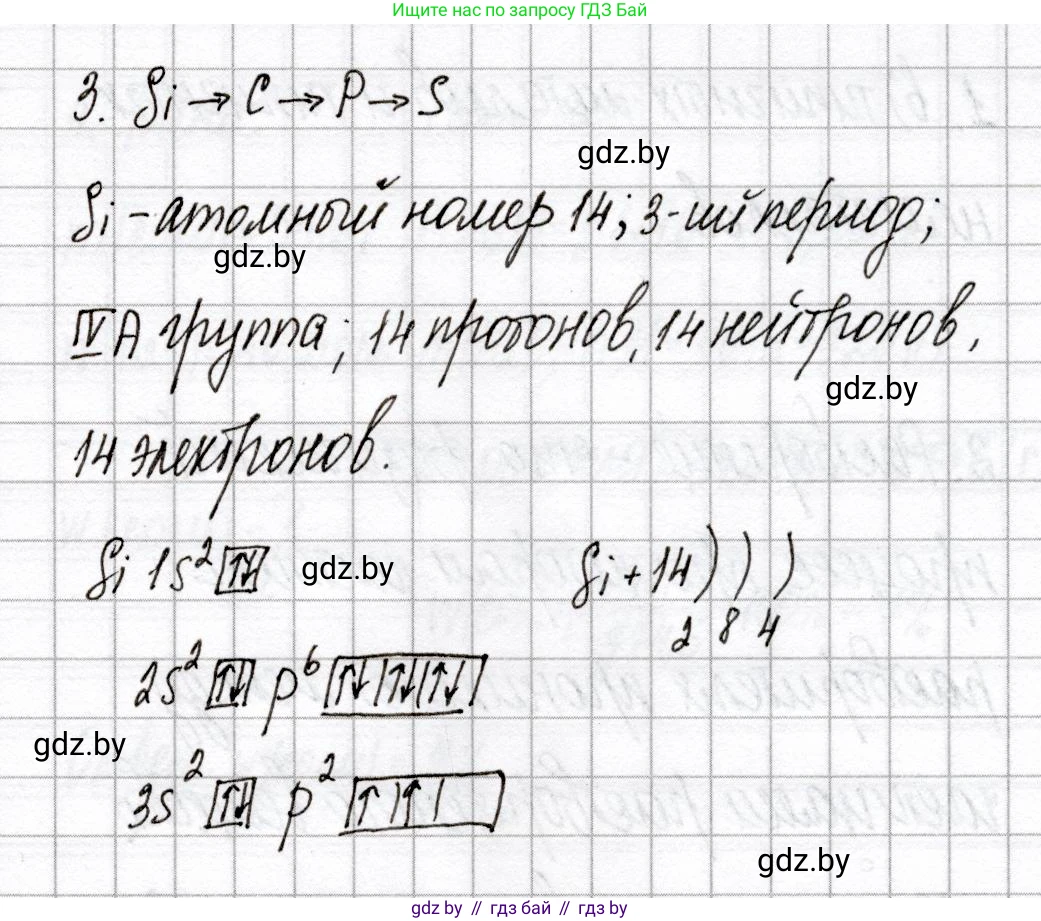 Ищите нас по запросу ГДЗ Бай
3. Si → C → P → S
gdz.by
Si – атомный номер 14; 3-ий период;
gdz.by
IV А группа; 14 протонов, 14 нейтронов,
gdz.by
14 электронов.
Si 1s² [↑↓] gdz.by Si +14 ) ) )
2 8 4
2s² [↑↓] p⁶ [↑↓|↑↓|↑↓]
gdz.by
3s² [↑↓] p² [↑|↑| ]
gdz.by
gdz.by // гдз бай // gdz.by